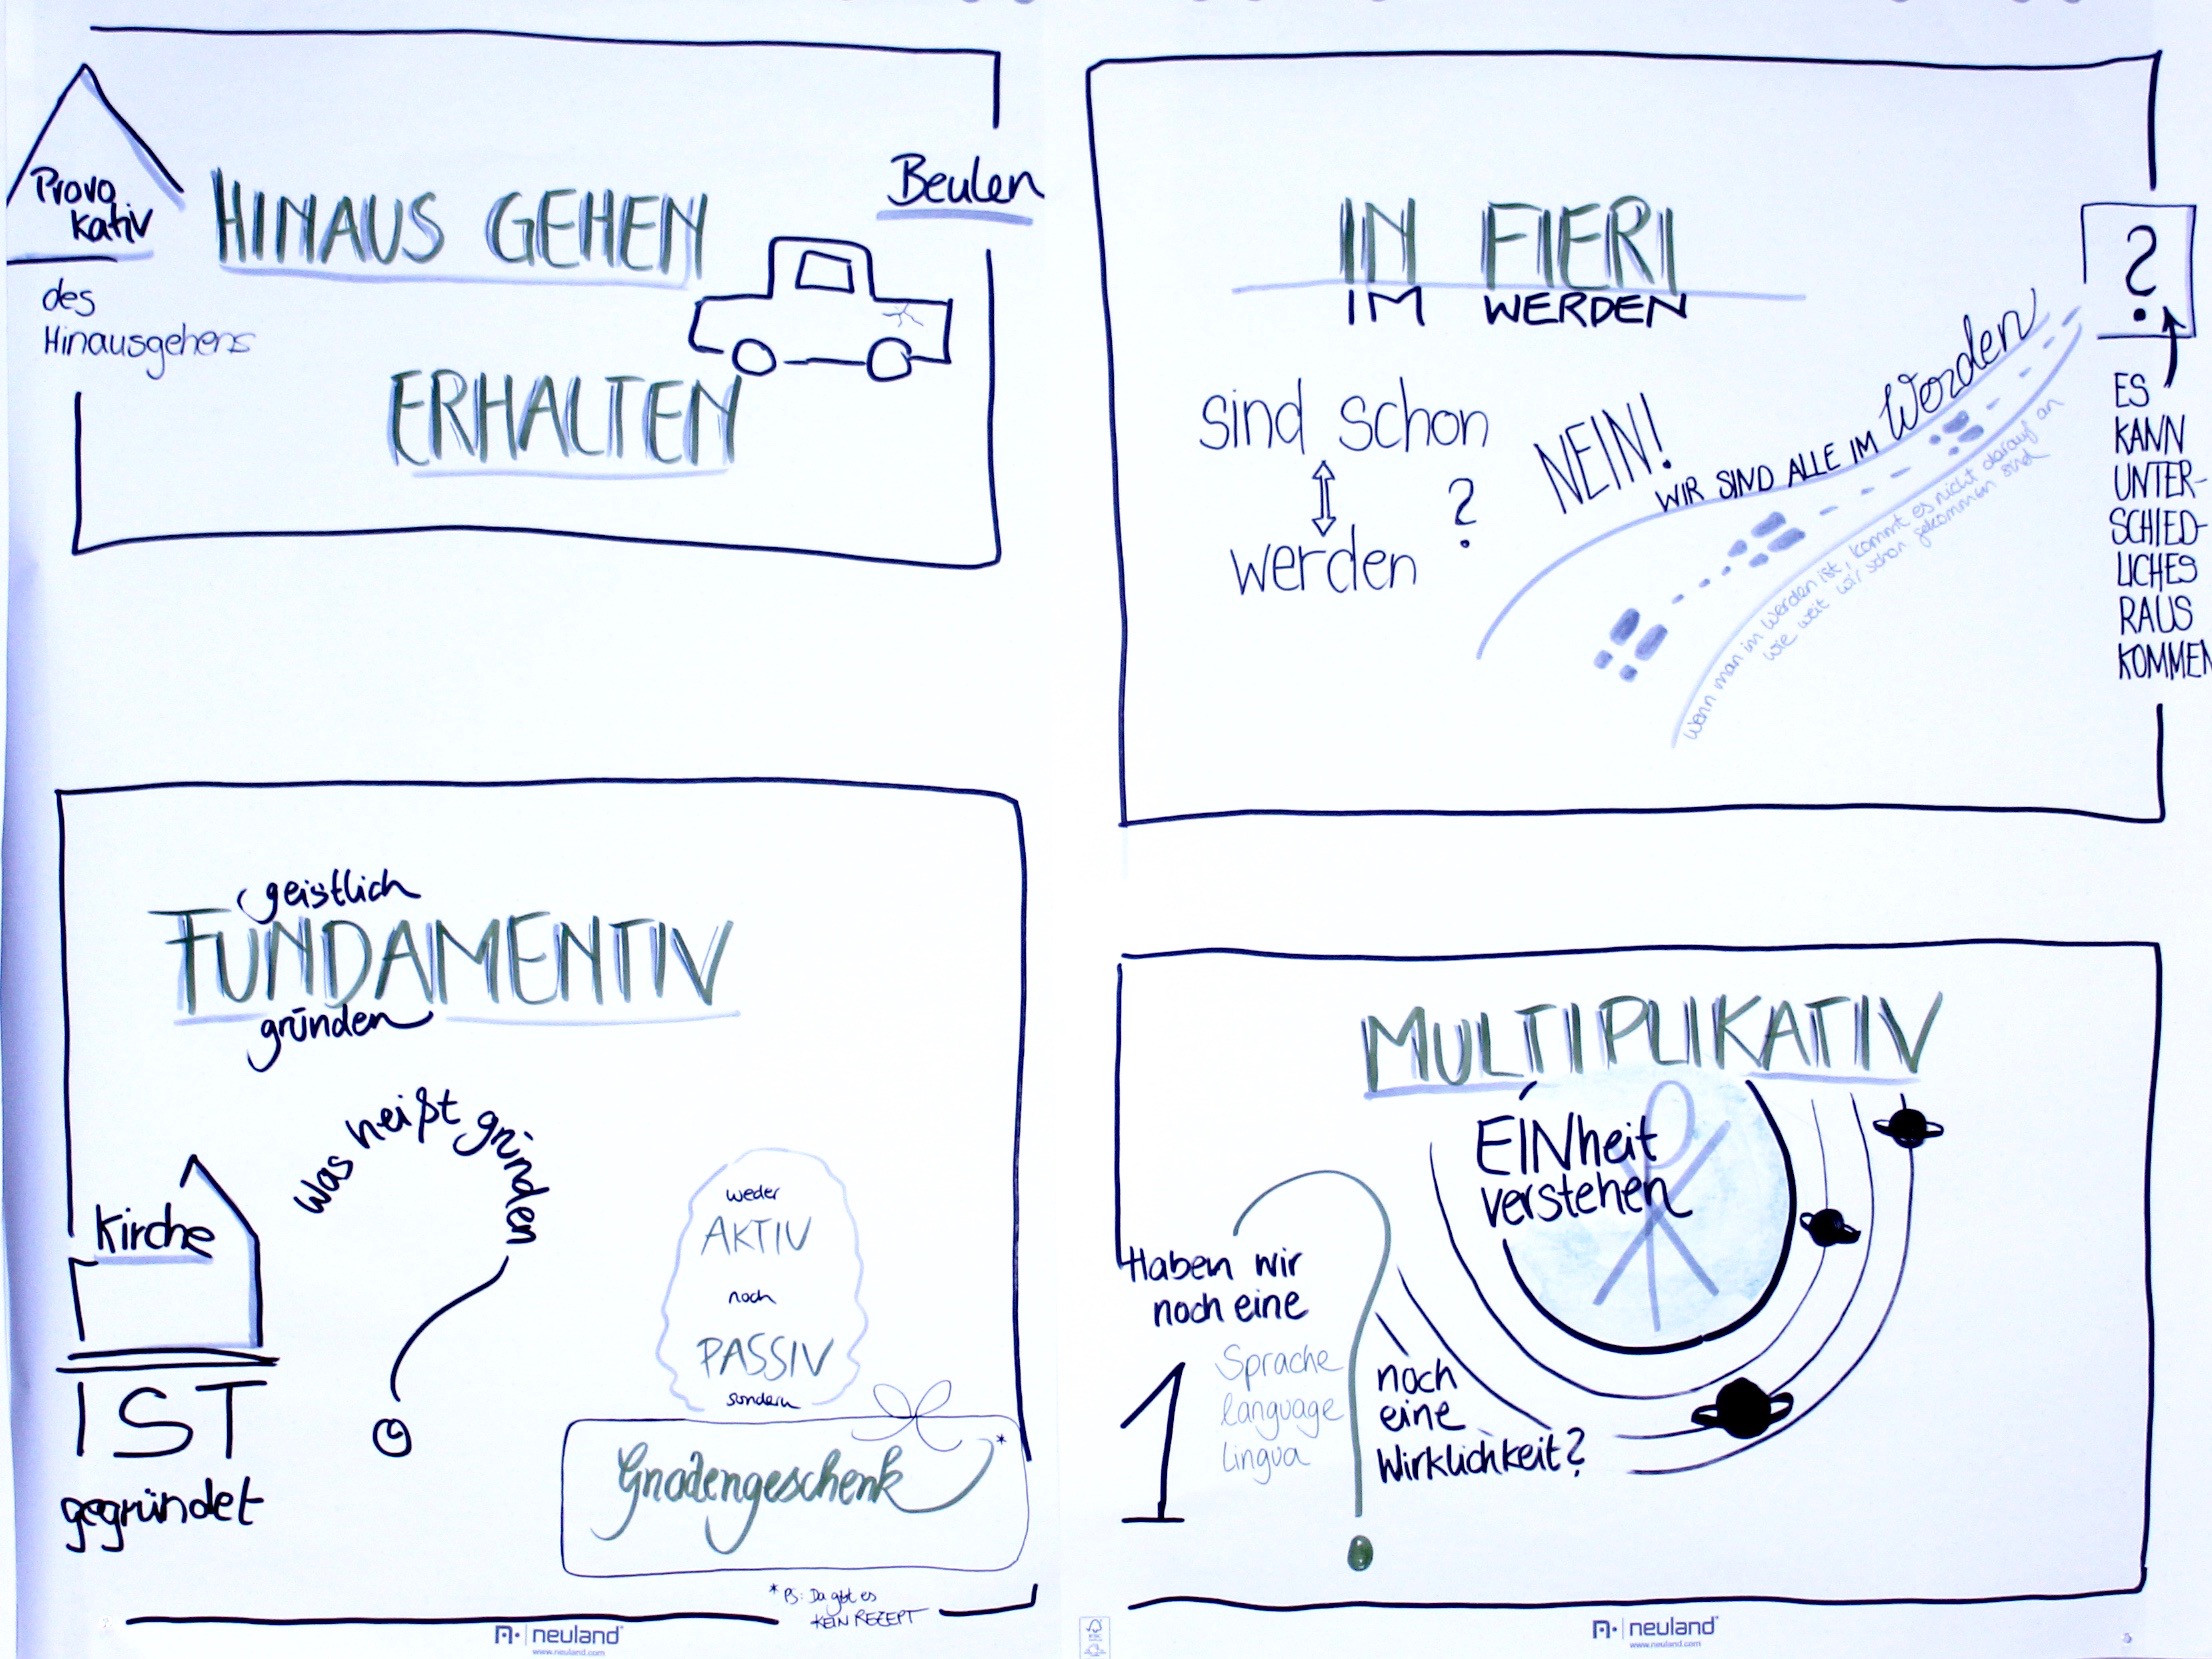 Provo
kativ
des
Hinausgehens
HINAUS GEHEN
ERHALTEN
Beulen
IN FIERI
IM WERDEN
sind schon
werden
?
NEIN!
WIR SIND ALLE IM Werden
wenn man im Werden ist, kommt es nicht darauf an
wie weit wir schon gekommen sind
?
ES
KANN
UNTER-
SCHIED-
LICHES
RAUS
KOMMEN
geistlich
FUNDAMENTIV
gründen
Kirche
IST
gegründet
Was heißt gründen
weder
AKTIV
noch
PASSIV
sondern
Gnadengeschenk *
* PS: Da gibt es
KEIN REZEPT
neuland
www.neuland.com
MULTIPLIKATIV
EINheit
verstehen
Haben wir
noch eine
1
Sprache
language
lingua
noch
eine
Wirklichkeit?
neuland
www.neuland.com